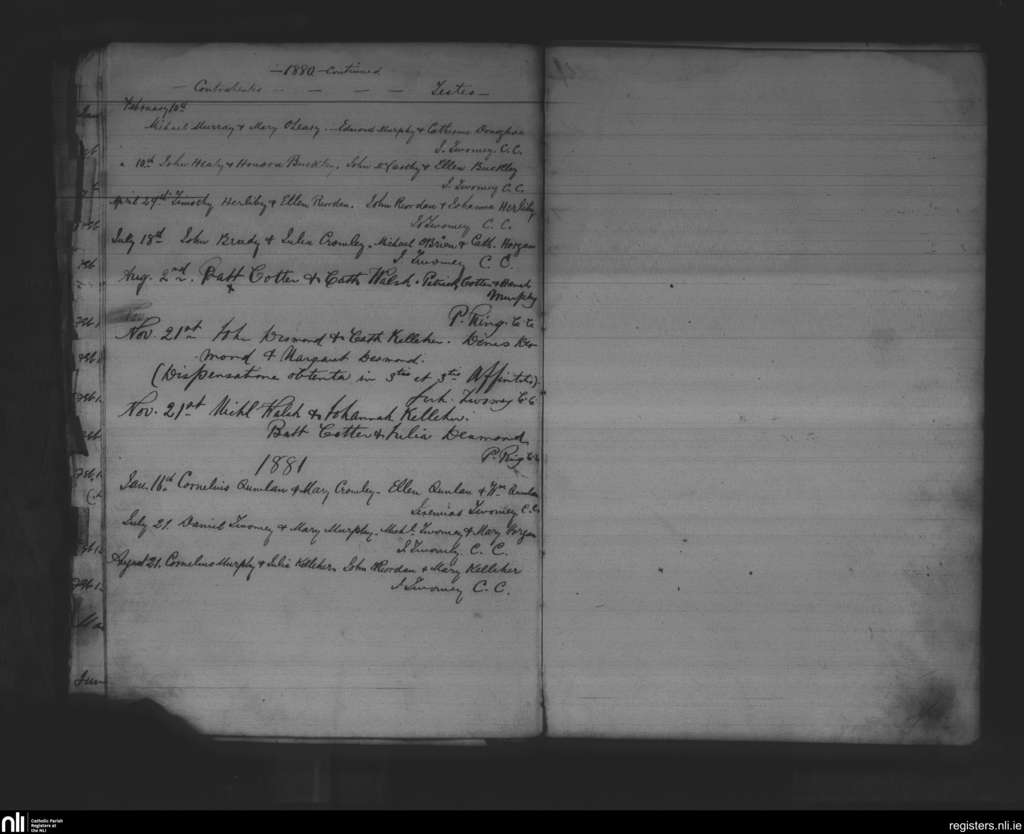 — 1880 — Continued
— Contrahentes — — — — Testes —
February 10th
Michael Murray & Mary O'Leary. — Edmond Murphy & Catherine Donoghue
J. Twomey. C.C.
" 10th John Healy & Honora Buckley. John McCarthy & Ellen Buckley
J. Twomey C.C.
April 29th Timothy Herlihy & Ellen Riordan. John Riordan & Johanna Herlihy
J. Twomey C. C.
July 18th John Brudy & Julia Crowley. Michael O'Brien & Cath. Horgan
J. Twomey C C.
Aug. 2nd. Batt Cotter & Cath Walsh. Patrick Cotter & Hanah
Murphy
P. Ring. C. C.
Nov. 21st John Desmond & Cath Kelleher. Denis Des-
mond & Margaret Desmond.
(Dispensatione obtenta in 3tio et 3tio Affinitatis).
Jerh. Twomey C.C.
Nov. 21st Michl Walsh & Johannah Kelleher.
Batt Cotter & Julia Desmond
P. Ring C.C.
1881
Jan. 16th Cornelius Quinlan & Mary Crowley. Ellen Quinlan & Wm Quinlan
Jeremias Twomey C.C.
July 21. Daniel Twomey & Mary Murphy. Michl. Twomey & Mary Horgan
J. Twomey C. C.
August 21. Cornelius Murphy & Julia Kelleher. John Riordan & Mary Kelleher
J. Twomey C. C.
nli
Catholic Parish
Registers at
the NLI
registers.nli.ie